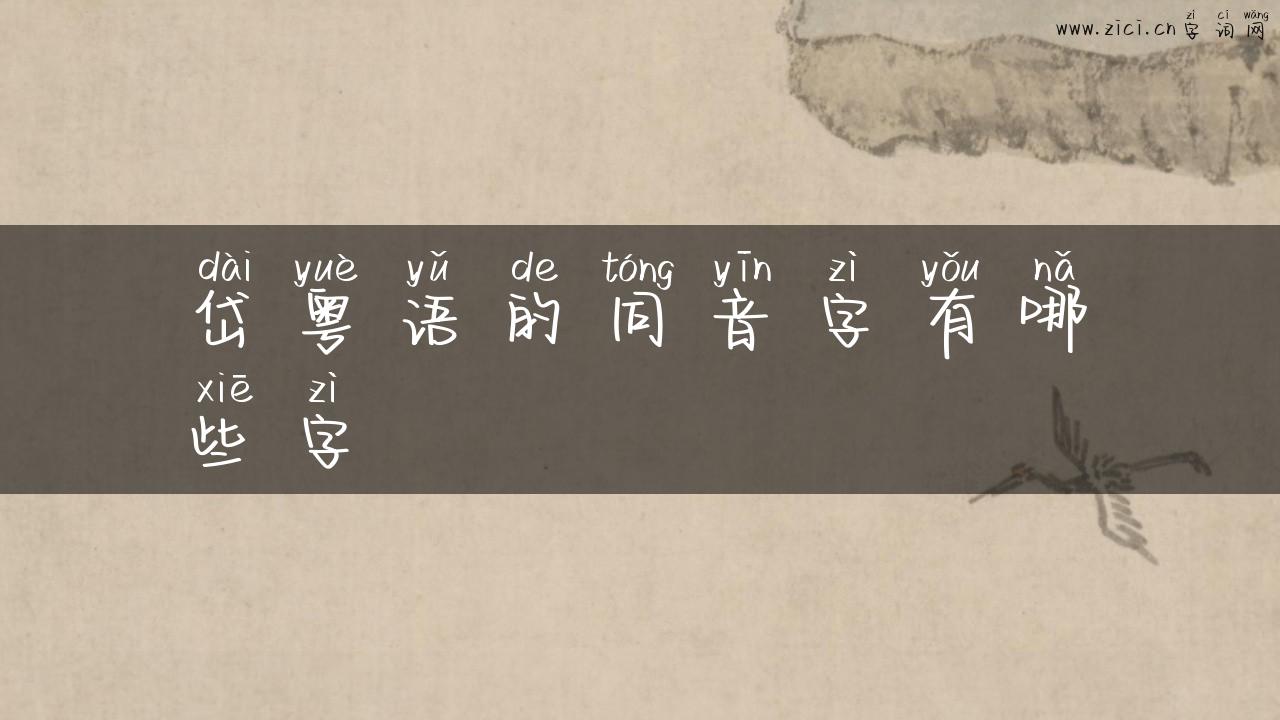 zì cí wǎng
www.zici.cn 字 词 网
dài yuè yǔ de tóng yīn zì yǒu nǎ
岱 粤 语 的 同 音 字 有 哪
xiē zì
些 字